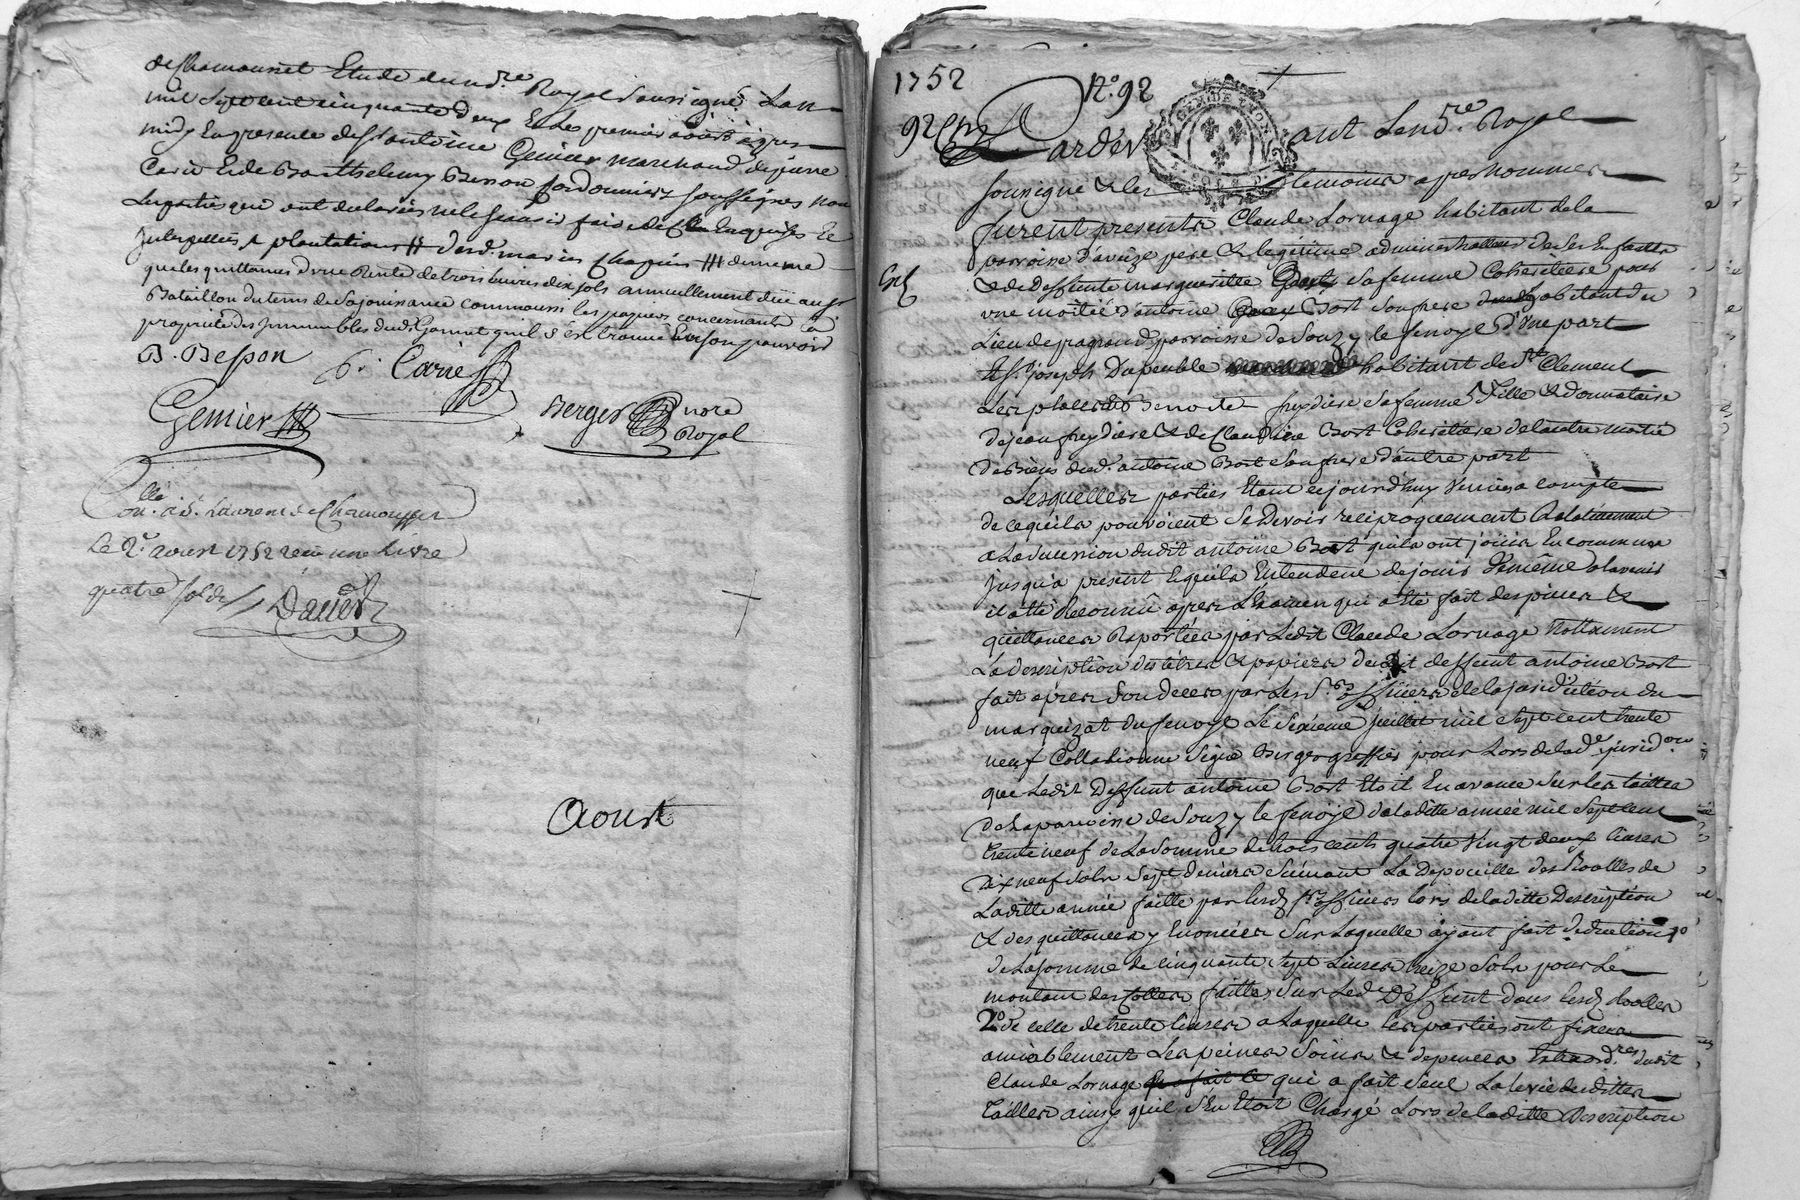 de Chamousset Etude du n.re Royal soussigné Lan
mil Sept cent cinquante deux Et Les premier aoust apres
midy En presence de St antoine Genier marchand
Carie Et de Barthelemy Besson Cordonnier soussignés non
Les parties qui ont declarés ne le scavoir faire de ce Enquises Et
Interpellés
quales quittances d'une Rente de trois livres dix sols annuellement düe au Sr
Bataillon du tems de sa jouissance comm aussi les papiers concernants la
propriété des Immeubles dud. Garnat qu'il s'est trouvé En son pouvoir
B. Besson
b. Carie
Genier
Berger no.re
Royal
Con.llé a St. Laurent de Chamousset
Le 2.e aoust 1752 Recu une Livre
quatre sols
Daver
Aoust
1752
N.° 92
92
Pardevant Le no.re Royal
soussigné & les temoins apres nommes
furent presents Claude Lornage habitant de la
parroisse d'aveize pere & legitime administrateur De Ses Enfants
& de deffunte marguerite Bost sa femme Coheritiere pour
une moitié d'antoine Bost Son frere habitant du
Lieu de parroisse de Souzy le fenoye d'Une part
Et Sr. joseph Dupeuble habitant de St. Clement
Les places & Benoite freydiere sa femme, Fille & donnataire
de jean freydiere & de Claudine Bost Coheritiere de lautre moitié
des Biens dud. antoine Bost Son frere d'autre part
Lesquelles parties Etant cejourd'huy Venües a compte
de ce qu'ils pouvoient Se Devoir reciproquement Relativement
a La succession dudit antoine Bost qu'ils ont jouis En commun
jusqu'a present Et quils Entendent de jouir de même a lavenir
il a été Reconnû apres L'Examen qui a été fait des pieces &
quittances Raportées par Ledit Claude Lornage Nottament
La description des titres & papiers dudit deffunt antoine Bost
fait apres Son deces par Les S.rs officiers de la jurisdiction du
marquizat du fenoyl Le Sixieme juillet mil Sept cent trente
neuf Collationné Signé Berger greffier pour Lors de la d.e jurid.on
que Ledit Deffunt antoine Bost Etoit En avance Sur les tailles
De La parroisse de Souzy le fenoyl de laditte année mil Sept cent
trente neuf de La Somme de trois cents quatre Vingt deux livres
Dix neuf Sols Sept Deniers Suivant La Depouille des Roolles de
Laditte année faitte par lesd. Srs officiers lors de laditte Description
& des quittances y Enoncées Sur Laquelle ayant fait deduction 1°
de La Somme de cinquante Sept Livres treize Sols pour Le
montant des Cottes faittes Sur Led. Deffunt dans lesd. Roolles
2° de celle de trente livres a Laquelle les parties ont fixés
amiablement Les peines Soins & depences Extraord.res dudit
Claude Lornage qui a fait Seul La levée desdittes
tailles ainsy qu'il S'En Etoit Chargé Lors de laditte Description